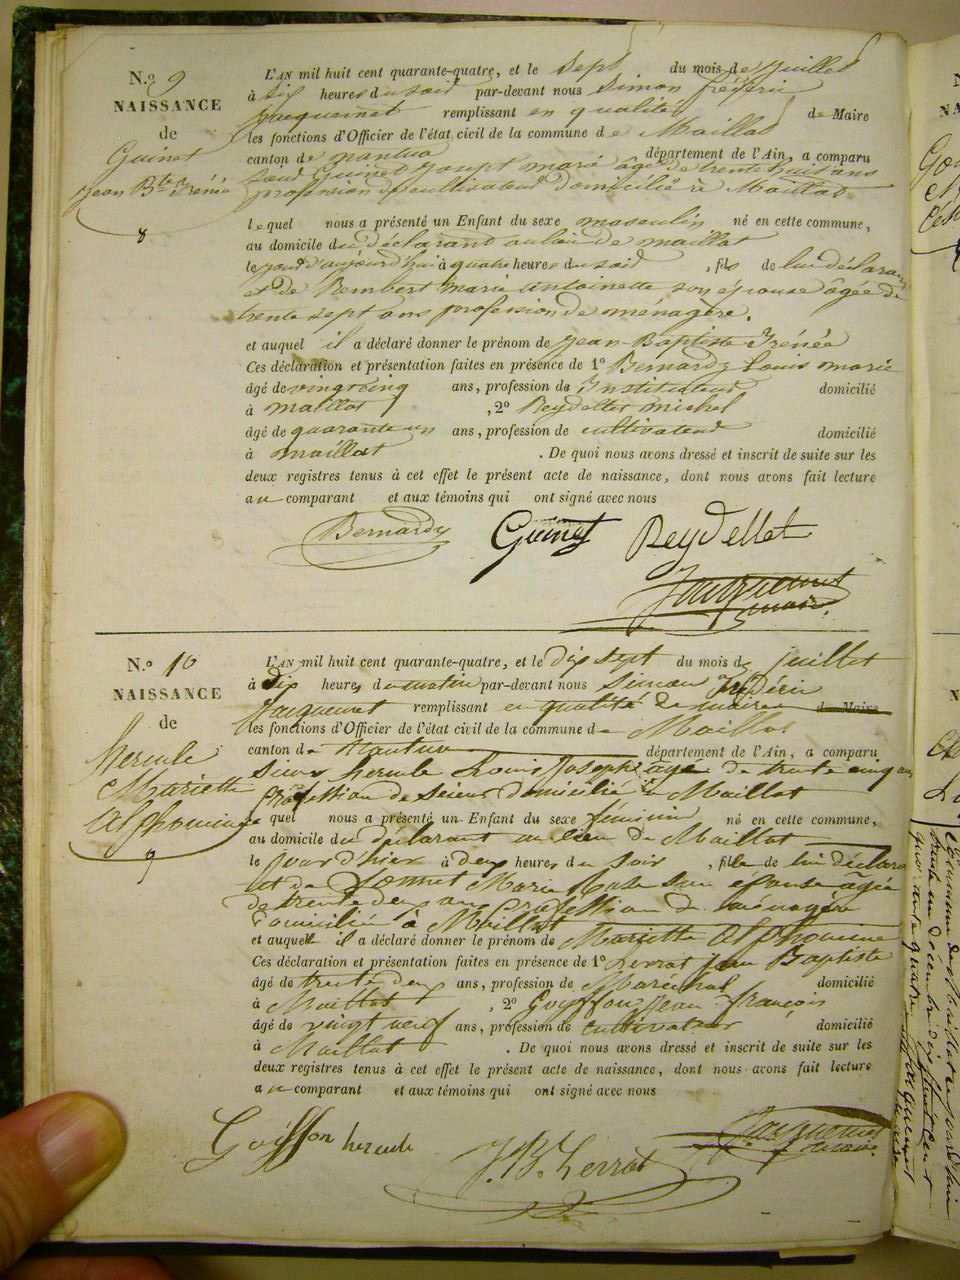 N.o 9
NAISSANCE
de
Guinet
Jean Bte Irénée
8
L'AN mil huit cent quarante-quatre, et le Sept du mois de Juillet
à Six heures du soir par-devant nous Simon Fréderic
Jacquemet remplissant en qualité de Maire
les fonctions d'Officier de l'état civil de la commune de Maillat
canton de nantua département de l'Ain, a comparu
Guinet Joseph marie âgé de trente huit ans
profession de cultivateur domicilié à Maillat
lequel nous a présenté un Enfant du sexe masculin né en cette commune,
au domicile du déclarant au lieu de maillat
le jour d'aujourd'hui à quatre heures du soir, fils de lui déclarant
et de Rembert marie antoinette son épouse âgée de
trente sept ans profession de ménagère.
et auquel il a déclaré donner le prénom de Jean-Baptiste Irénée
Ces déclaration et présentation faites en présence de 1o Bernardy Louis marie
âgé de vingt cinq ans, profession de Instituteur domicilié
à maillat, 2o Reydellet michel
âgé de quarante un ans, profession de cultivateur domicilié
à maillat. De quoi nous avons dressé et inscrit de suite sur les
deux registres tenus à cet effet le présent acte de naissance, dont nous avons fait lecture
au comparant et aux témoins qui ont signé avec nous
Bernardy Guinet Reydellet
Jacquemet
maire.
N.o 10
NAISSANCE
de
hercule
Mariette
Alphonsine
9
L'AN mil huit cent quarante-quatre, et le dix sept du mois de juillet
à dix heures du matin par-devant nous Simon Fréderic
Jacquemet remplissant en qualité de maire de Maire
les fonctions d'Officier de l'état civil de la commune de Maillat
canton de Nantua département de l'Ain, a comparu
sieur hercule Louis Joseph âgé de trente cinq ans
profession de scieur domicilié à Maillat
lequel nous a présenté un Enfant du sexe féminin né en cette commune,
au domicile du déclarant au lieu de Maillat
le jour d'hier à deux heures du soir, fille de lui déclarant
et de Marie Rose son épouse âgée
de trente deux ans profession de ménagère
domicilié à Maillat
et auquel il a déclaré donner le prénom de Mariette Alphonsine
Ces déclaration et présentation faites en présence de 1o Jean Baptiste
âgé de trente deux ans, profession de Maréchal domicilié
à Maillat, 2o Goyffon Jean françois
âgé de vingt neuf ans, profession de cultivateur domicilié
à Maillat. De quoi nous avons dressé et inscrit de suite sur les
deux registres tenus à cet effet le présent acte de naissance, dont nous avons fait lecture
au comparant et aux témoins qui ont signé avec nous
Goiffon hercule Jacquemet
J.B. maire.